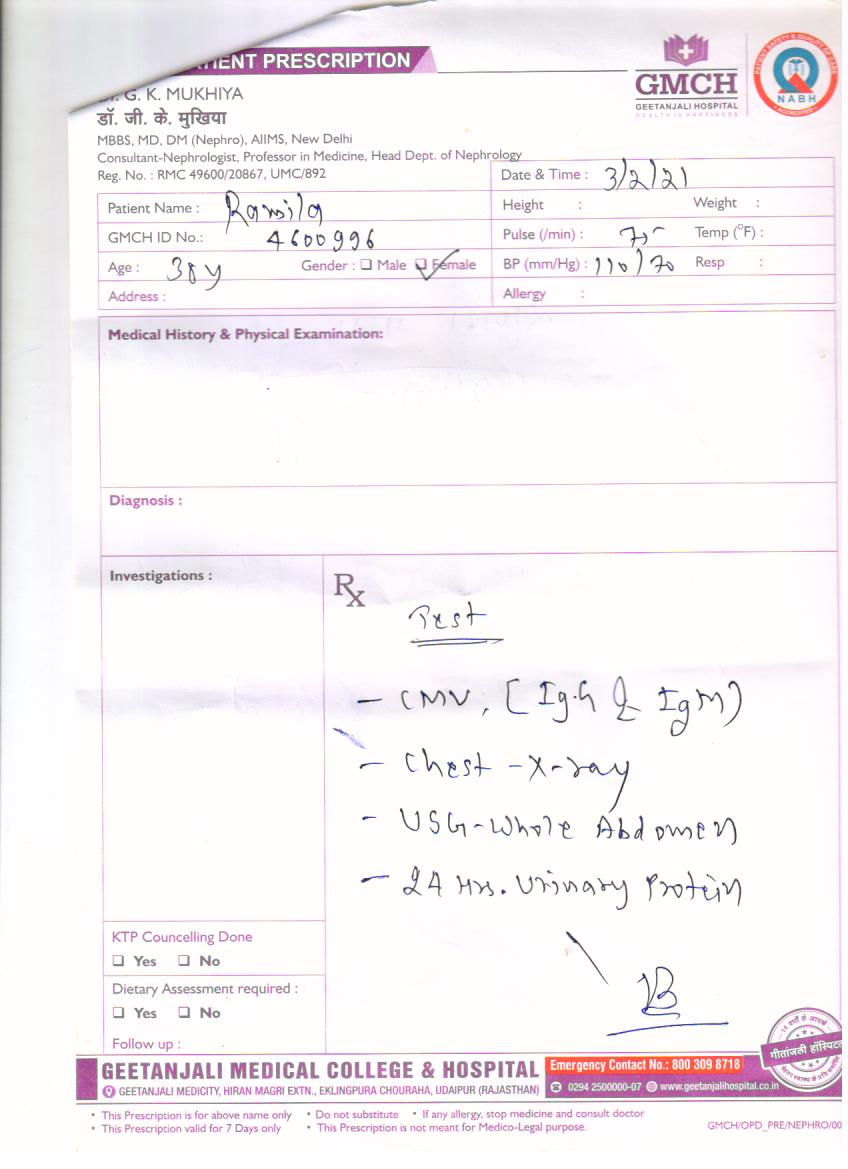 TIENT PRESCRIPTION
GMCH
GEETANJALI HOSPITAL
HEALTH IS HAPPINESS
PATIENT SAFETY & QUALITY OF CARE
NABH
ACCREDITED
Dr. G. K. MUKHIYA
डॉ. जी. के. मुखिया
MBBS, MD, DM (Nephro), AIIMS, New Delhi
Consultant-Nephrologist, Professor in Medicine, Head Dept. of Nephrology
Reg. No. : RMC 49600/20867, UMC/892
Date & Time : 3/2/21
Patient Name : Ramila
Height : Weight :
GMCH ID No.: 4600996
Pulse (/min) : Temp (°F) :
Age : 38y Gender : ❑ Male ❑ Female
BP (mm/Hg) : 110/70 Resp :
Address :
Allergy :
Medical History & Physical Examination:
Diagnosis :
Investigations :
Rx
Test
- CMV, [IgG & IgM)
- Chest-X-ray
- USG-Whole Abdomen
- 24 Hrs. Urinary Protein
KTP Councelling Done
❑ Yes ❑ No
Dietary Assessment required :
❑ Yes ❑ No
Follow up :
गीतांजली हॉस्पिटल
GEETANJALI MEDICAL COLLEGE & HOSPITAL
Emergency Contact No.: 800 309 8718
GEETANJALI MEDICITY, HIRAN MAGRI EXTN., EKLINGPURA CHOURAHA, UDAIPUR (RAJASTHAN)
0294 2500000-07 www.geetanjalihospital.co.in
• This Prescription is for above name only • Do not substitute • If any allergy, stop medicine and consult doctor
• This Prescription valid for 7 Days only • This Prescription is not meant for Medico-Legal purpose.
GMCH/OPD_PRE/NEPHRO/00